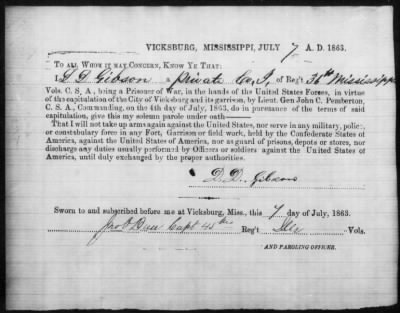 VICKSBURG, MISSISSIPPI, JULY 7 A. D. 1863.
TO ALL WHOM IT MAY CONCERN, KNOW YE THAT:
I, D Gibson a Private Co. I, of Reg't 36th Mississippi
Vols. C. S. A., being a Prisoner of War, in the hands of the United States Forces, in virtue
of the capitulation of the City of Vicksburg and its garrison, by Lieut. Gen John C. Pemberton,
C. S. A., Commanding, on the 4th day of July, 1863, do in pursuance of the terms of said
capitulation, give this my solemn parole under oath——
That I will not take up arms again against the United States, nor serve in any military, police,
or constabulary force in any Fort, Garrison or field work, held by the Confederate States of
America, against the United States of America, nor as guard of prisons, depots or stores, nor
discharge any duties usually performed by Officers or soldiers against the United States of
America, until duly exchanged by the proper authorities.
D. D. Gibson
Sworn to and subscribed before me at Vicksburg, Miss., this 7 day of July, 1863.
Capt 45th Reg't Ills Vols.
AND PAROLING OFFICER.